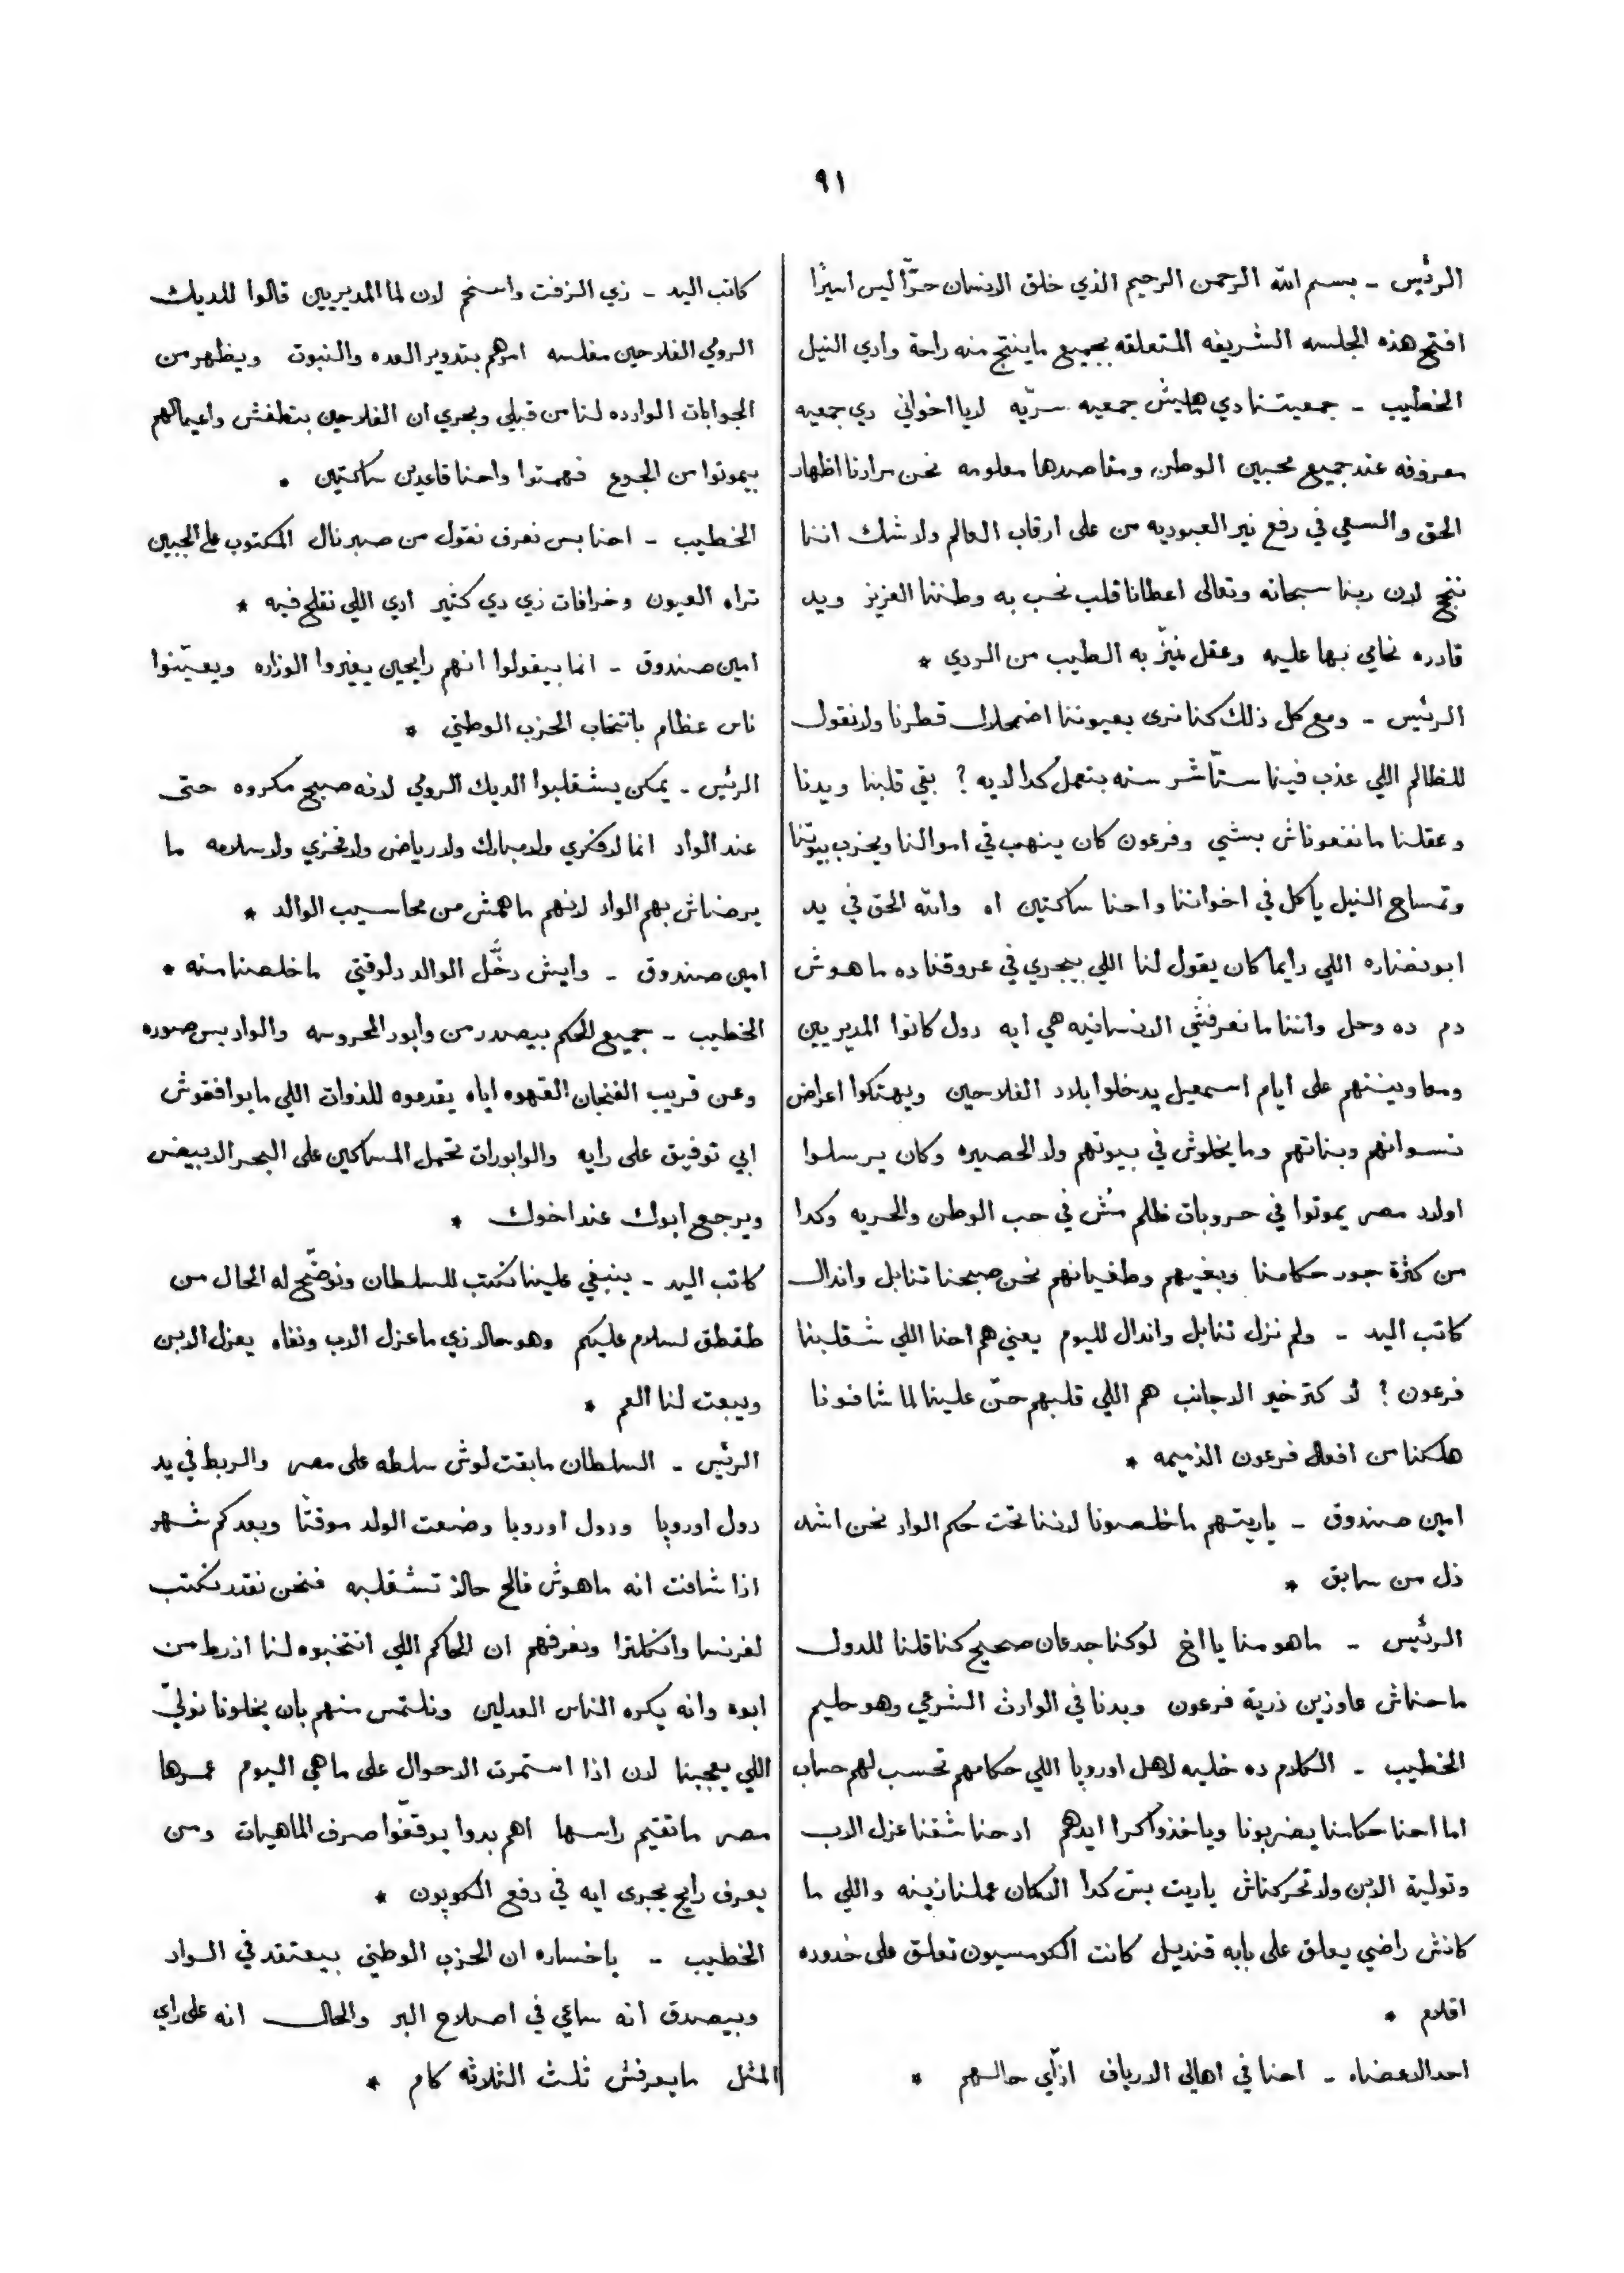 ٩١
الرئيس - بسم الله الرحمن الرحيم الذي خلق الانسان حرًّا ليس اسيرًا
افتتح هذه الجلسه الشريفه المتعلقه بجميع ماينتج منه راحة وادي النيل
الخطيب - جمعيتنا دي ماهيش جمعيه سرّيه لا يا اخواني دي جمعيه
معروفه عند جميع محبين الوطن ومقاصدها معلومه نحن مرادنا اظهار
الحق والسعي في رفع نير العبوديه من على ارقاب العالم ولا شك اننا
ننجح لان ربنا سبحانه وتعالى اعطانا قلب نحب به وطننا العزيز ويد
قادره نحامي بها عليه وعقل نميّز به الطيب من الردي *
الرئيس - ومع كل ذلك كنا نرى بعيوننا اضمحلال قطرنا ولا نقول
للظالم اللي عذب فينا ستّاشر سنه بتعمل كدا لايه ? بقي قلبنا ويدنا
وعقلنا ما نفعوناش بشي وفرعون كان ينهب في اموالنا ويخرب بيوتنا
وتمساح النيل ياكل في اخواننا واحنا ساكتين اه والله الحق في يد
ابو نضاره اللي دايما كان يقول لنا اللي بيجري في عروقنا ده ماهوش
دم ده وحل واننا ما نعرفشي الانسانيه هي ايه دول كانوا المديريين
ومعاوينينهم على ايام اسمعيل يدخلوا بلاد الفلاحين ويهتكوا اعراض
نسوانهم وبناتهم وما يخلوش في بيوتهم ولا الحصيره وكان يرسلوا
اولاد مصر يموتوا في حروبات ظلم مُش في حب الوطن والحريه وكدا
من كثرة جور حكامنا وبغيهم وطغيانهم نحن صبحنا تنابل واندال
كاتب اليد - ولم نزل تنابل واندال لليوم يعني هم احنا اللي شقلبنا
فرعون ? لا كتر خير الاجانب هم اللي قلبهم حنّ علينا لما شافونا
هلكنا من افعال فرعون الذميمه *
امين صندوق - ياريتهم ما خلصونا لاننا تحت حكم الواد نحن اشد
ذل من سابق *
الرئيس - ماهو منا يا اخ لوكنا جدعان صحيح كنا قلنا للدول
ماحناش عاوزين ذرية فرعون وبدنا في الوارث الشرعي وهو حليم
الخطيب - الكلام ده خليه لاهل اوروپا اللي حكامهم تحسب لهم حساب
اما احنا حكامنا يضربونا وياخذوا كرا ايدهم ادحنا شفنا عزل الاب
وتولية الابن ولا تحركناش ياريت بسّ كدا الا كان عملنا زينه واللي ما
كانش راضي يعلق على بابه قنديل كانت الكومسيون تعلق على خدوده
اقلام *
احد الاعضاء - احنا في اهالي الارياف ازّاي حالهم *
كاتب اليد - زي الزفت واسخم لان لما المديريين قالوا للديك
الرومي الفلاحين مفلسه امرهم بتدوير العده والنبوت ويظهر من
الجوابات الوارده لنا من قبلي وبحري ان الفلاحين بتطفش واعيالهم
بيموتوا من الجوع فهمتوا واحنا قاعدين ساكتين *
الخطيب - احنا بس نعرف نقول من صبر نال المكتوب على الجبين
تراه العيون وخرافات زي دي كتير ادي اللي نفلح فيه *
امين صندوق - انما بيقولوا انهم رايحين يغيروا الوزاره ويعيّنوا
ناس عظام بانتخاب الحزب الوطني *
الرئيس - يمكن يشقلبوا الديك الرومي لانه صبح مكروه حتى
عند الواد انما لا فكري ولا مبارك ولا رياض ولا فخري ولا سلامه ما
يرضاش بهم الواد لانهم ماهمش من محاسيب الوالد *
امين صندوق - وايش دخَّل الوالد دلوقتي ما خلصنا منه *
الخطيب - جميع الحكم بيصدر من وابور المحروسه والواد بس صوره
وعن قريب الفنجان القهوه اياه يقدموه للذوات اللي مايوافقوش
ابي توفيق على رايه والوابورات تحمل المساكين على البحر الابيض
ويرجع ابوك عند اخوك *
كاتب اليد - ينبغي علينا نكتب للسلطان ونوضّح له الحال من
طقطق لسلام عليكم وهو حالا زي ما عزل الاب ونفاه يعزل الابن
ويبعت لنا العم *
الرئيس - السلطان مابقت لوش سلطه على مصر والربط في يد
دول اوروپا ودول اوروپا وضعت الولد موقتًا وبعد كم شهر
اذا شافت انه ماهوش فالح حالا تشقلبه فنحن نقدر نكتب
لفرنسا وانكلترا ونعرفهم ان الحاكم اللي انتخبوه لنا اذرط من
ابوه وانه يكره الناس العدلين ونلتمس منهم بان يخلونا نولّي
اللي يعجبنا لان اذا استمرت الاحوال على ماهي اليوم عمرها
مصر ماتقيم راسها اهم بدوا يوقفوا صرف الماهيات ومن
يعرف رايح يجرى ايه في دفع الكوپون *
الخطيب - ياخساره ان الحزب الوطني بيعتقد في الواد
وبيصدق انه ساعي في اصلاح البر والحال انه على راي
المثل مايعرفش ثلث الثلاثه كام *